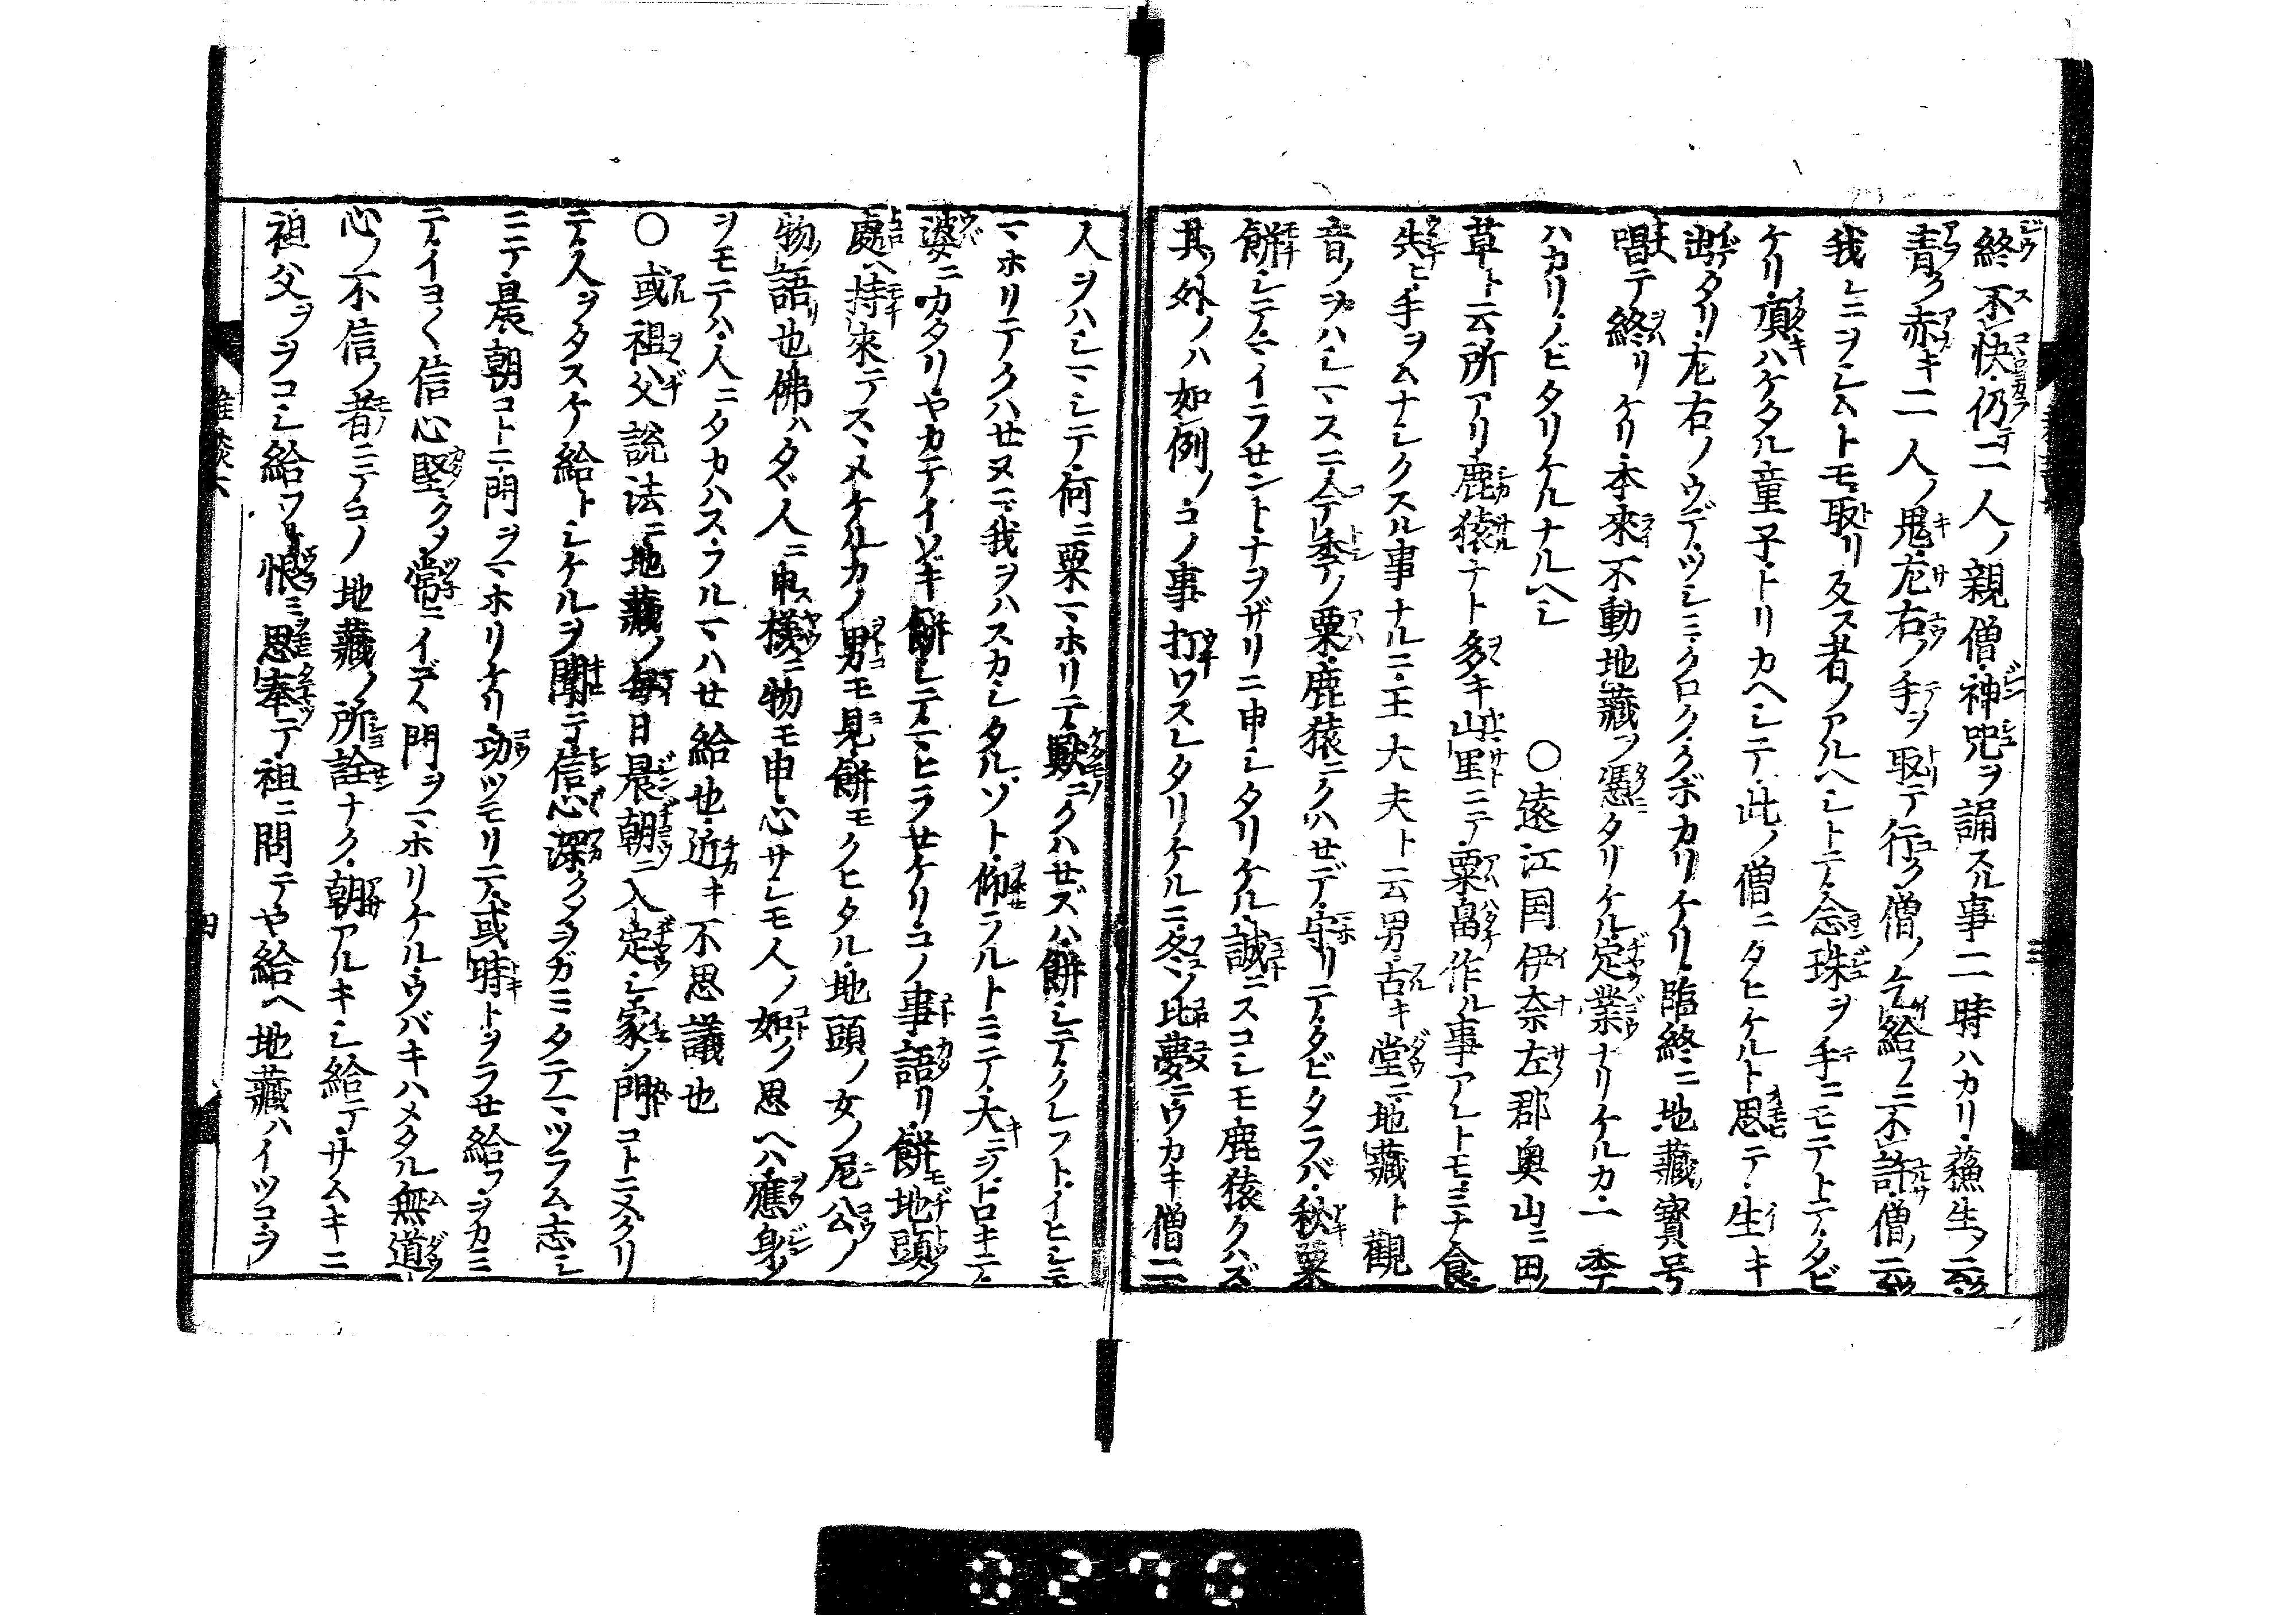 終不快仍テ二人ノ親僧神呪ヲ誦スル事二時ハカリ蘇生ノ云ク
青ク赤キ二人ノ鬼左右ノ手ヲ取テ行ク僧ノ乞給フニ不許僧ノ云ク
我レニヲシムトモ取リ反ス者ノアルヘシトテ念珠ヲ手ニモテトテタビ
ケリ頂ハケタル童子トリカヘシテ此ノ僧ニタヒケルト思テ生キ
出タリ左右ノウデツシミクロククボカリケリ臨終ニ地藏ノ寶号
唱テ終リケリ本來不動地藏ヲ憑タリケル定業ナリケルカ一季
ハカリノビタリケルナルヘシ 〇遠江国伊奈左郡奥山ニ田ノ
草ト云所アリ鹿猿ナト多キ山里ニテ粟畠作ル事アレトモミナ食
失ヒ手ヲムナシクスル事ナルニ王大夫ト云男古キ堂ニ地藏ト觀
音ノヲハシマスニ今季ノ粟鹿猿ニクハセデ守リテタビタラバ秋粟
餅シテマイラセントナヲザリニ申シタリケル誠ニスコシモ鹿猿クハズ
其ノ外ノハ如例ノコノ事打ワスレタリケルニ冬ノ比夢ニワカキ僧二
人ヲハシマシテ何ニ粟マホリテ獸ニクハセズハ餅シテクレフトイヒシモ
マホリテクハセヌニ我ヲハスカシタルソト仰ラルトミテ大ニヲトロキテ
婆ニカタリヤカテイソギ餅シテマヒラセケリコノ事語リ餅地頭ノ
處ヘ持來テスヽメケルカノ男モ見餅モクヒタル地頭ノ女ノ尼公ノ
物語也佛ハタヾ人ニ申ス樣ニ物モ申心サシモ人ノ如ク思ヘハ應身ノ
ヲモテハ人ニタカハスフルマハせ給也近キ不思議也
〇或祖父説法ニ地藏ノ毎日晨朝ニ入定シ家ノ門コトニヌクリ
テ人ヲタスケ給トシケルヲ聞テ信心深クヲガミタテマツラム志シ
ニテ晨朝コトニ門ヲマホリケリ功ツモリテ或時トヲラせ給フヲカミ
テイヨ〱信心堅クタ常ニイデヽ門ヲマホリケルウバキハメタル無道
心ノ不信ノ者ニテコノ地藏ノ所詮ナク朝アルキシ給テサムキニ
祖父ヲヲコシ給フト恨ミ思奉テ祖ニ問テヤ給ヘ地藏ハイツコヲ